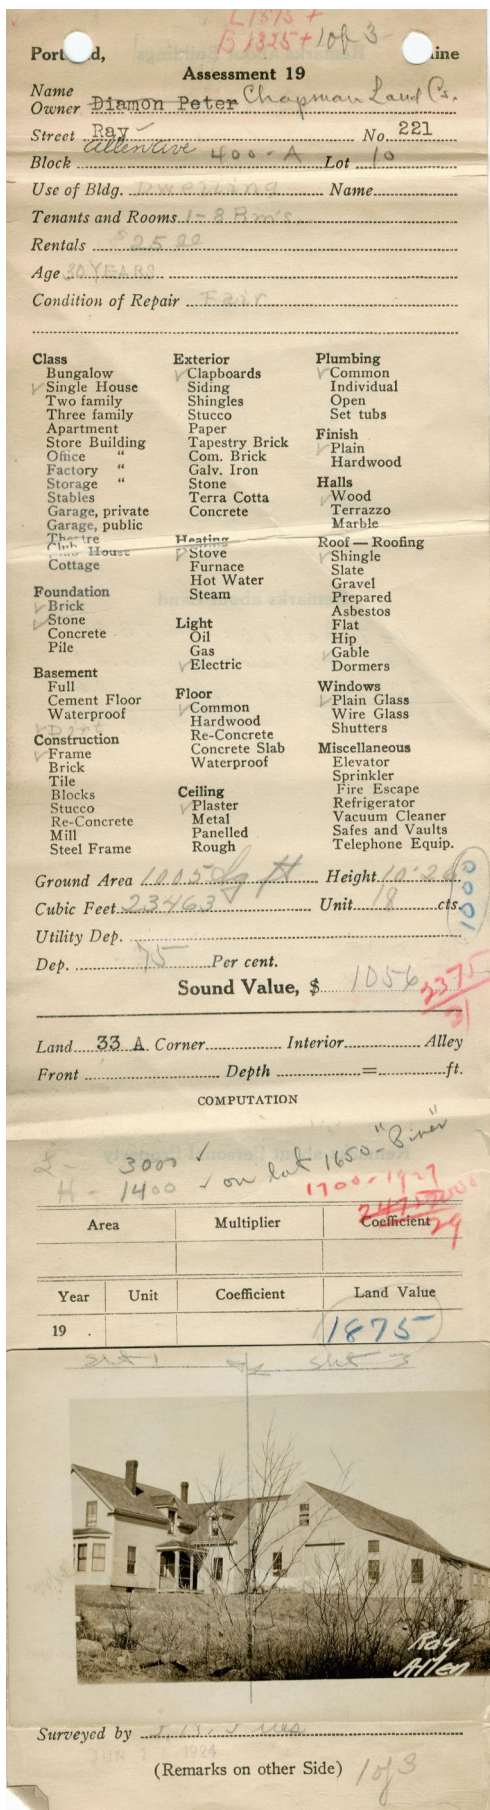 L 1575 +
B 1325 + 1 of 3
Portland, Maine
Assessment 19
Name
Owner Diamon Peter Chapman Land Co.
Street Ray No. 221
Allen Ave
Block 400-A Lot 10
Use of Bldg. Dwelling Name
Tenants and Rooms 1-8 Rm's.
Rentals $25 00
Age 30 YEARS
Condition of Repair Fair
Class
Bungalow
✓ Single House
Two family
Three family
Apartment
Store Building
Office "
Factory "
Storage "
Stables
Garage, private
Garage, public
Theatre
Club House
Cottage
Foundation
✓ Brick
✓ Stone
Concrete
Pile
Basement
Full
Cement Floor
Waterproof
✓ Dirt
Construction
✓ Frame
Brick
Tile
Blocks
Stucco
Re-Concrete
Mill
Steel Frame
Exterior
✓ Clapboards
Siding
Shingles
Stucco
Paper
Tapestry Brick
Com. Brick
Galv. Iron
Stone
Terra Cotta
Concrete
Heating
✓ Stove
Furnace
Hot Water
Steam
Light
Oil
Gas
✓ Electric
Floor
✓ Common
Hardwood
Re-Concrete
Concrete Slab
Waterproof
Ceiling
✓ Plaster
Metal
Panelled
Rough
Plumbing
✓ Common
Individual
Open
Set tubs
Finish
✓ Plain
Hardwood
Halls
✓ Wood
Terrazzo
Marble
Roof — Roofing
✓ Shingle
Slate
Gravel
Prepared
Asbestos
Flat
Hip
✓ Gable
Dormers
Windows
✓ Plain Glass
Wire Glass
Shutters
Miscellaneous
Elevator
Sprinkler
Fire Escape
Refrigerator
Vacuum Cleaner
Safes and Vaults
Telephone Equip.
Ground Area 1005 Sq ft Height 10-26
Cubic Feet 23463 Unit 18 cts.
1000
Utility Dep.
Dep. 75 Per cent.
Sound Value, $ 1056
2375
31
Land 33 A. Corner Interior Alley
Front Depth = ft.
COMPUTATION
L - 3000 ✓
H - 1400 ✓ on lot 1650-
1700-1927
29
Area Multiplier Coefficient
Year Unit Coefficient Land Value
19 . 1875
sht 1 sht 3
Ray
Allen
Surveyed by
JUN 1924
(Remarks on other Side) 1 of 3